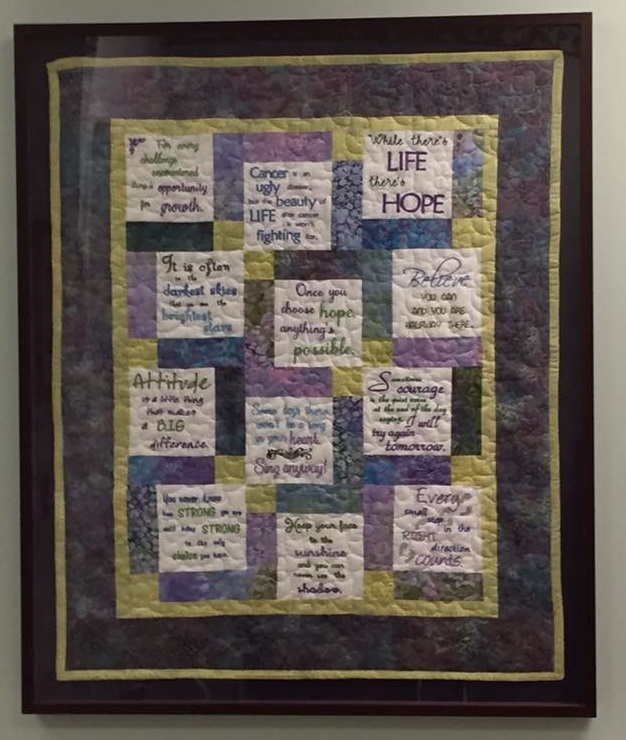 For every
challenge
encountered
there's opportunity
for growth.
Cancer is an
ugly disease,
but the beauty of
LIFE after cancer
is worth
fighting for.
While there's
LIFE
there's
HOPE
It is often
in the
darkest skies
that we see the
brightest
stars
Once you
choose hope,
anything's
possible.
Believe
YOU CAN
AND YOU ARE
HALFWAY THERE.
Attitude
is a little thing
that makes
a BIG
difference.
Some days there
won't be a song
in your heart.
Sing anyway!
Sometimes
courage
is the quiet voice
at the end of the day
saying, I will
try again
tomorrow.
You never know
how STRONG you are
until being STRONG
is the only
choice you have.
Keep your face
to the
sunshine
and you can
never see the
shadow.
Every
small
step in the
RIGHT
direction
counts.